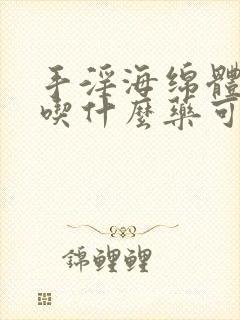 手淫海绵體
喫什麼藥可
錦鯉鯉